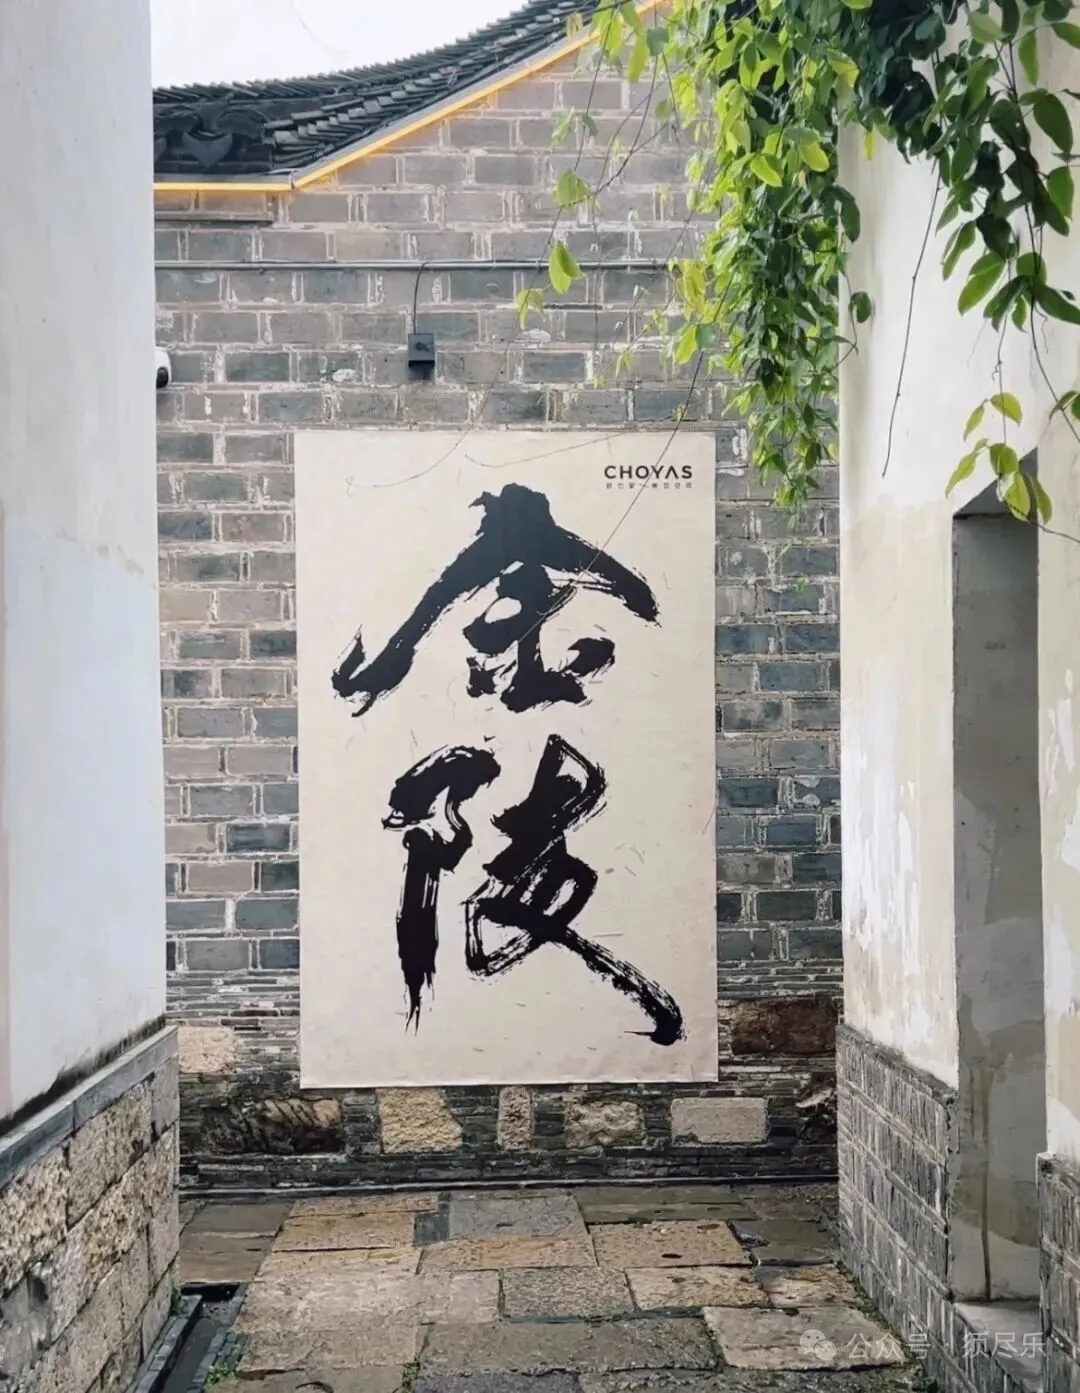 CHOYAS
金
陵
公众号 | 须尽乐